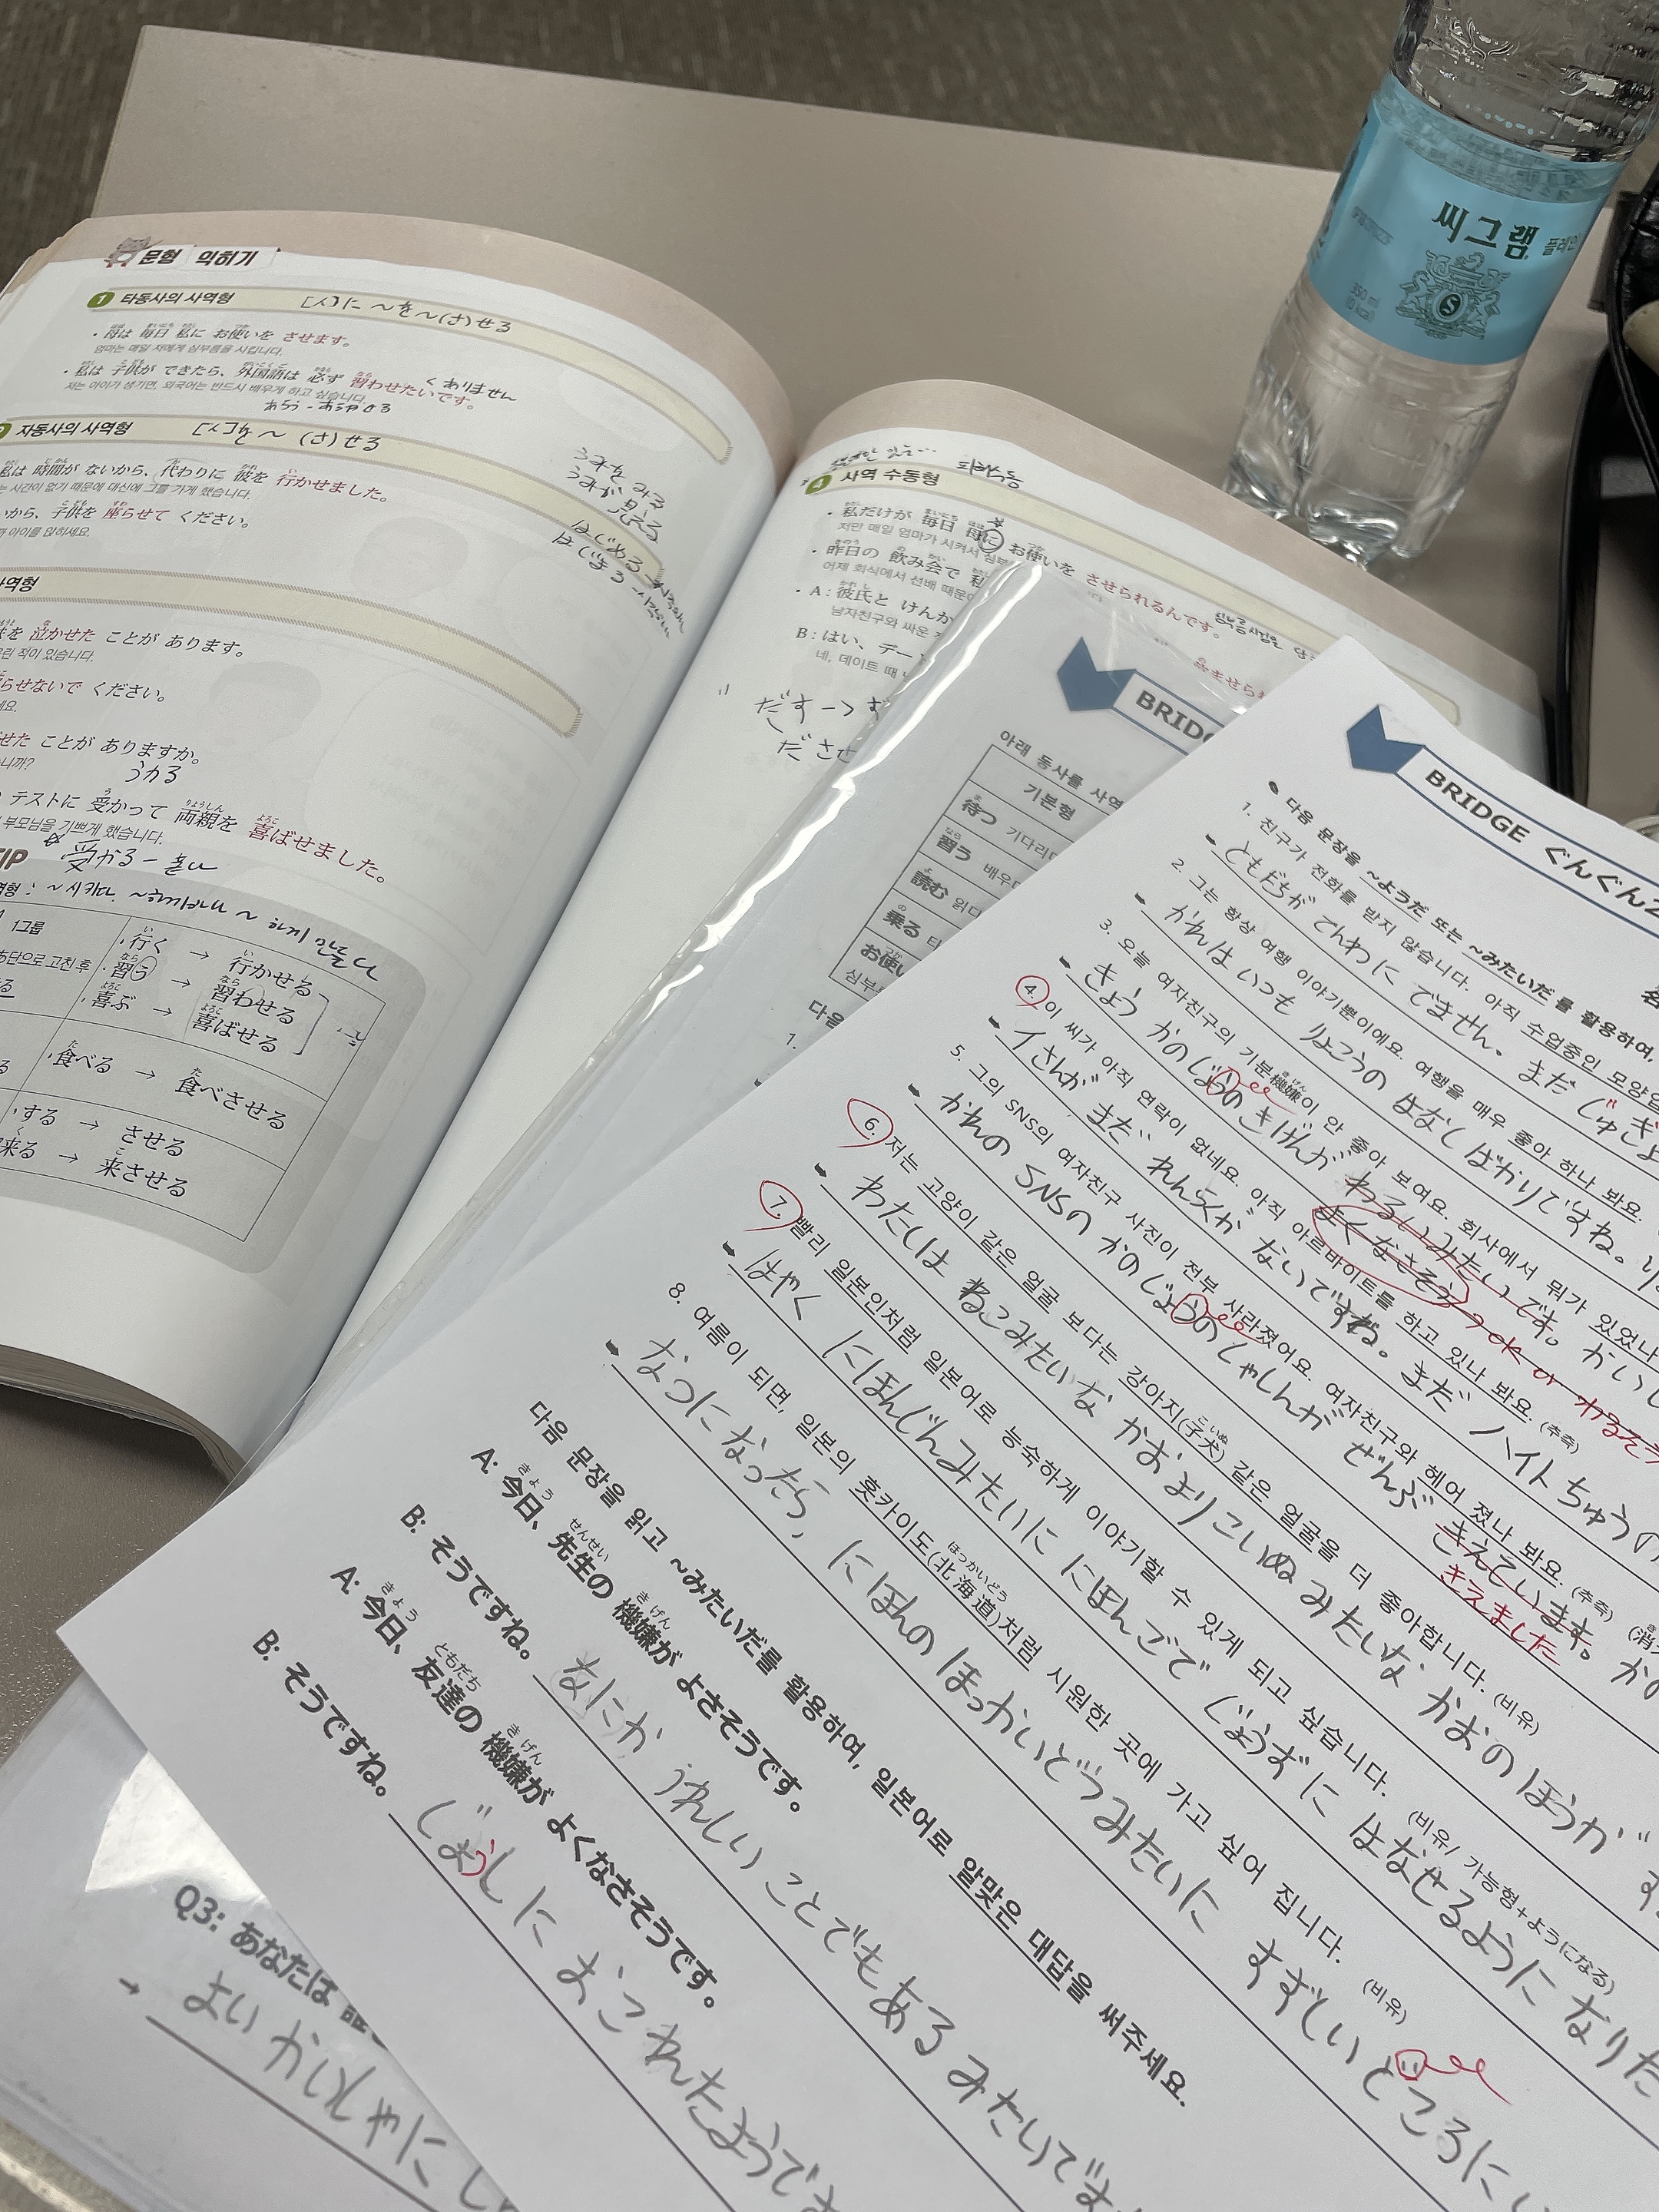 문형 익히기
1 타동사의 사역형 [人]に ~を~(さ)せる
・母は 毎日 私に お使いを させます。
엄마는 매일 저에게 심부름을 시킵니다.
・私は 子供が できたら、外国語は 必ず 習わせたいです。 くありません
저는 아이가 생기면, 외국어는 반드시 배우게 하고 싶습니다.
자동사의 사역형 [人]を~ (さ)せる
私は 時間が ないから、代わりに 彼を 行かせました。
시간이 없기 때문에 대신에 그를 가게 했습니다.
から、子供を 座らせて ください。
아이를 앉히세요.
うみを みる
うみが 見える
はじめる
はじまる
사역형
を 泣かせた ことが あります。
린 적이 있습니다.
らせないで ください。
세요.
せた ことが ありますか。
니까?
うかる
テストに 受かって 両親を 喜ばせました。
부모님을 기쁘게 했습니다.
受かる
TIP
1그룹
行く → 行かせる
習う → 習わせる
喜ぶ → 喜ばせる
食べる → 食べさせる
する → させる
来る → 来させる
4 사역 수동형
・私だけが 毎日 母に お使いを させられるんです。
저만 매일 엄마가 시켜서 심부
・昨日の 飲み会で 私
어제 회식에서 선배 때문에
・A : 彼氏と けんか
남자친구와 싸운
B : はい、デー
네, 데이트 때
だす→
ださせ
BRIDG
아래 동사를 사역
기본형
待つ 기다리다
習う 배우다
読む 읽다
乗る 타
お使い
심부
다음
1.
씨그램
플레인
350 ml
BRIDGE ぐんぐん
다음 문장을 ~ようだ 또는 ~みたいだ 를 활용하여,
1. 친구가 전화를 받지 않습니다. 아직 수업중인 모양입
ともだちが でんわに でません。 まだ じゅぎょ
2. 그는 항상 여행 이야기뿐이에요. 여행을 매우 좋아 하나 봐요.
かれは いつも りょこうの はなし ばかりですね。 り
3. 오늘 여자친구의 기분機嫌이 안 좋아 보여요. 회사에서 뭐가 있었나
きょう かのじょうの きげんが わるいみたいです。 かいし
よくなさそう ok or わるそう
4. 이 씨가 아직 연락이 없네요. 아직 아르바이트를 하고 있나 봐요. (추측)
イさんが まだ れんらくが ないですね。 まだ バイトちゅうの
5. 그의 SNS의 여자친구 사진이 전부 사라졌어요. 여자친구와 헤어 졌나 봐요. (추측)
かれの SNSの かのじょうの しゃしんが ぜんぶ きえています。 かの
きえました
6. 저는 고양이 같은 얼굴 보다는 강아지(子犬) 같은 얼굴을 더 좋아합니다. (비유)
わたしは ねこみたいな かおより こいぬみたいな かおの ほうが
7. 빨리 일본인처럼 일본어로 능숙하게 이야기할 수 있게 되고 싶습니다. (비유/ 가능형+ようになる)
はやく にほんじんみたいに にほんごで じょうずに はなせるように なりた
8. 여름이 되면, 일본의 홋카이도(北海道)처럼 시원한 곳에 가고 싶어 집니다. (비유)
なつになったら, にほんの ほっかいどうみたいに すずしい どころに
다음 문장을 읽고 ~みたいだ를 활용하여, 일본어로 알맞은 대답을 써주세요.
A: 今日、先生の 機嫌が よさそうです。
B: そうですね。 なにか うれしい ことでも あるみたいです
A: 今日、友達の 機嫌が よくなさそうです。
B: そうですね。 じょうしに おこれたようで
Q3: あなたは
よい かいしゃに